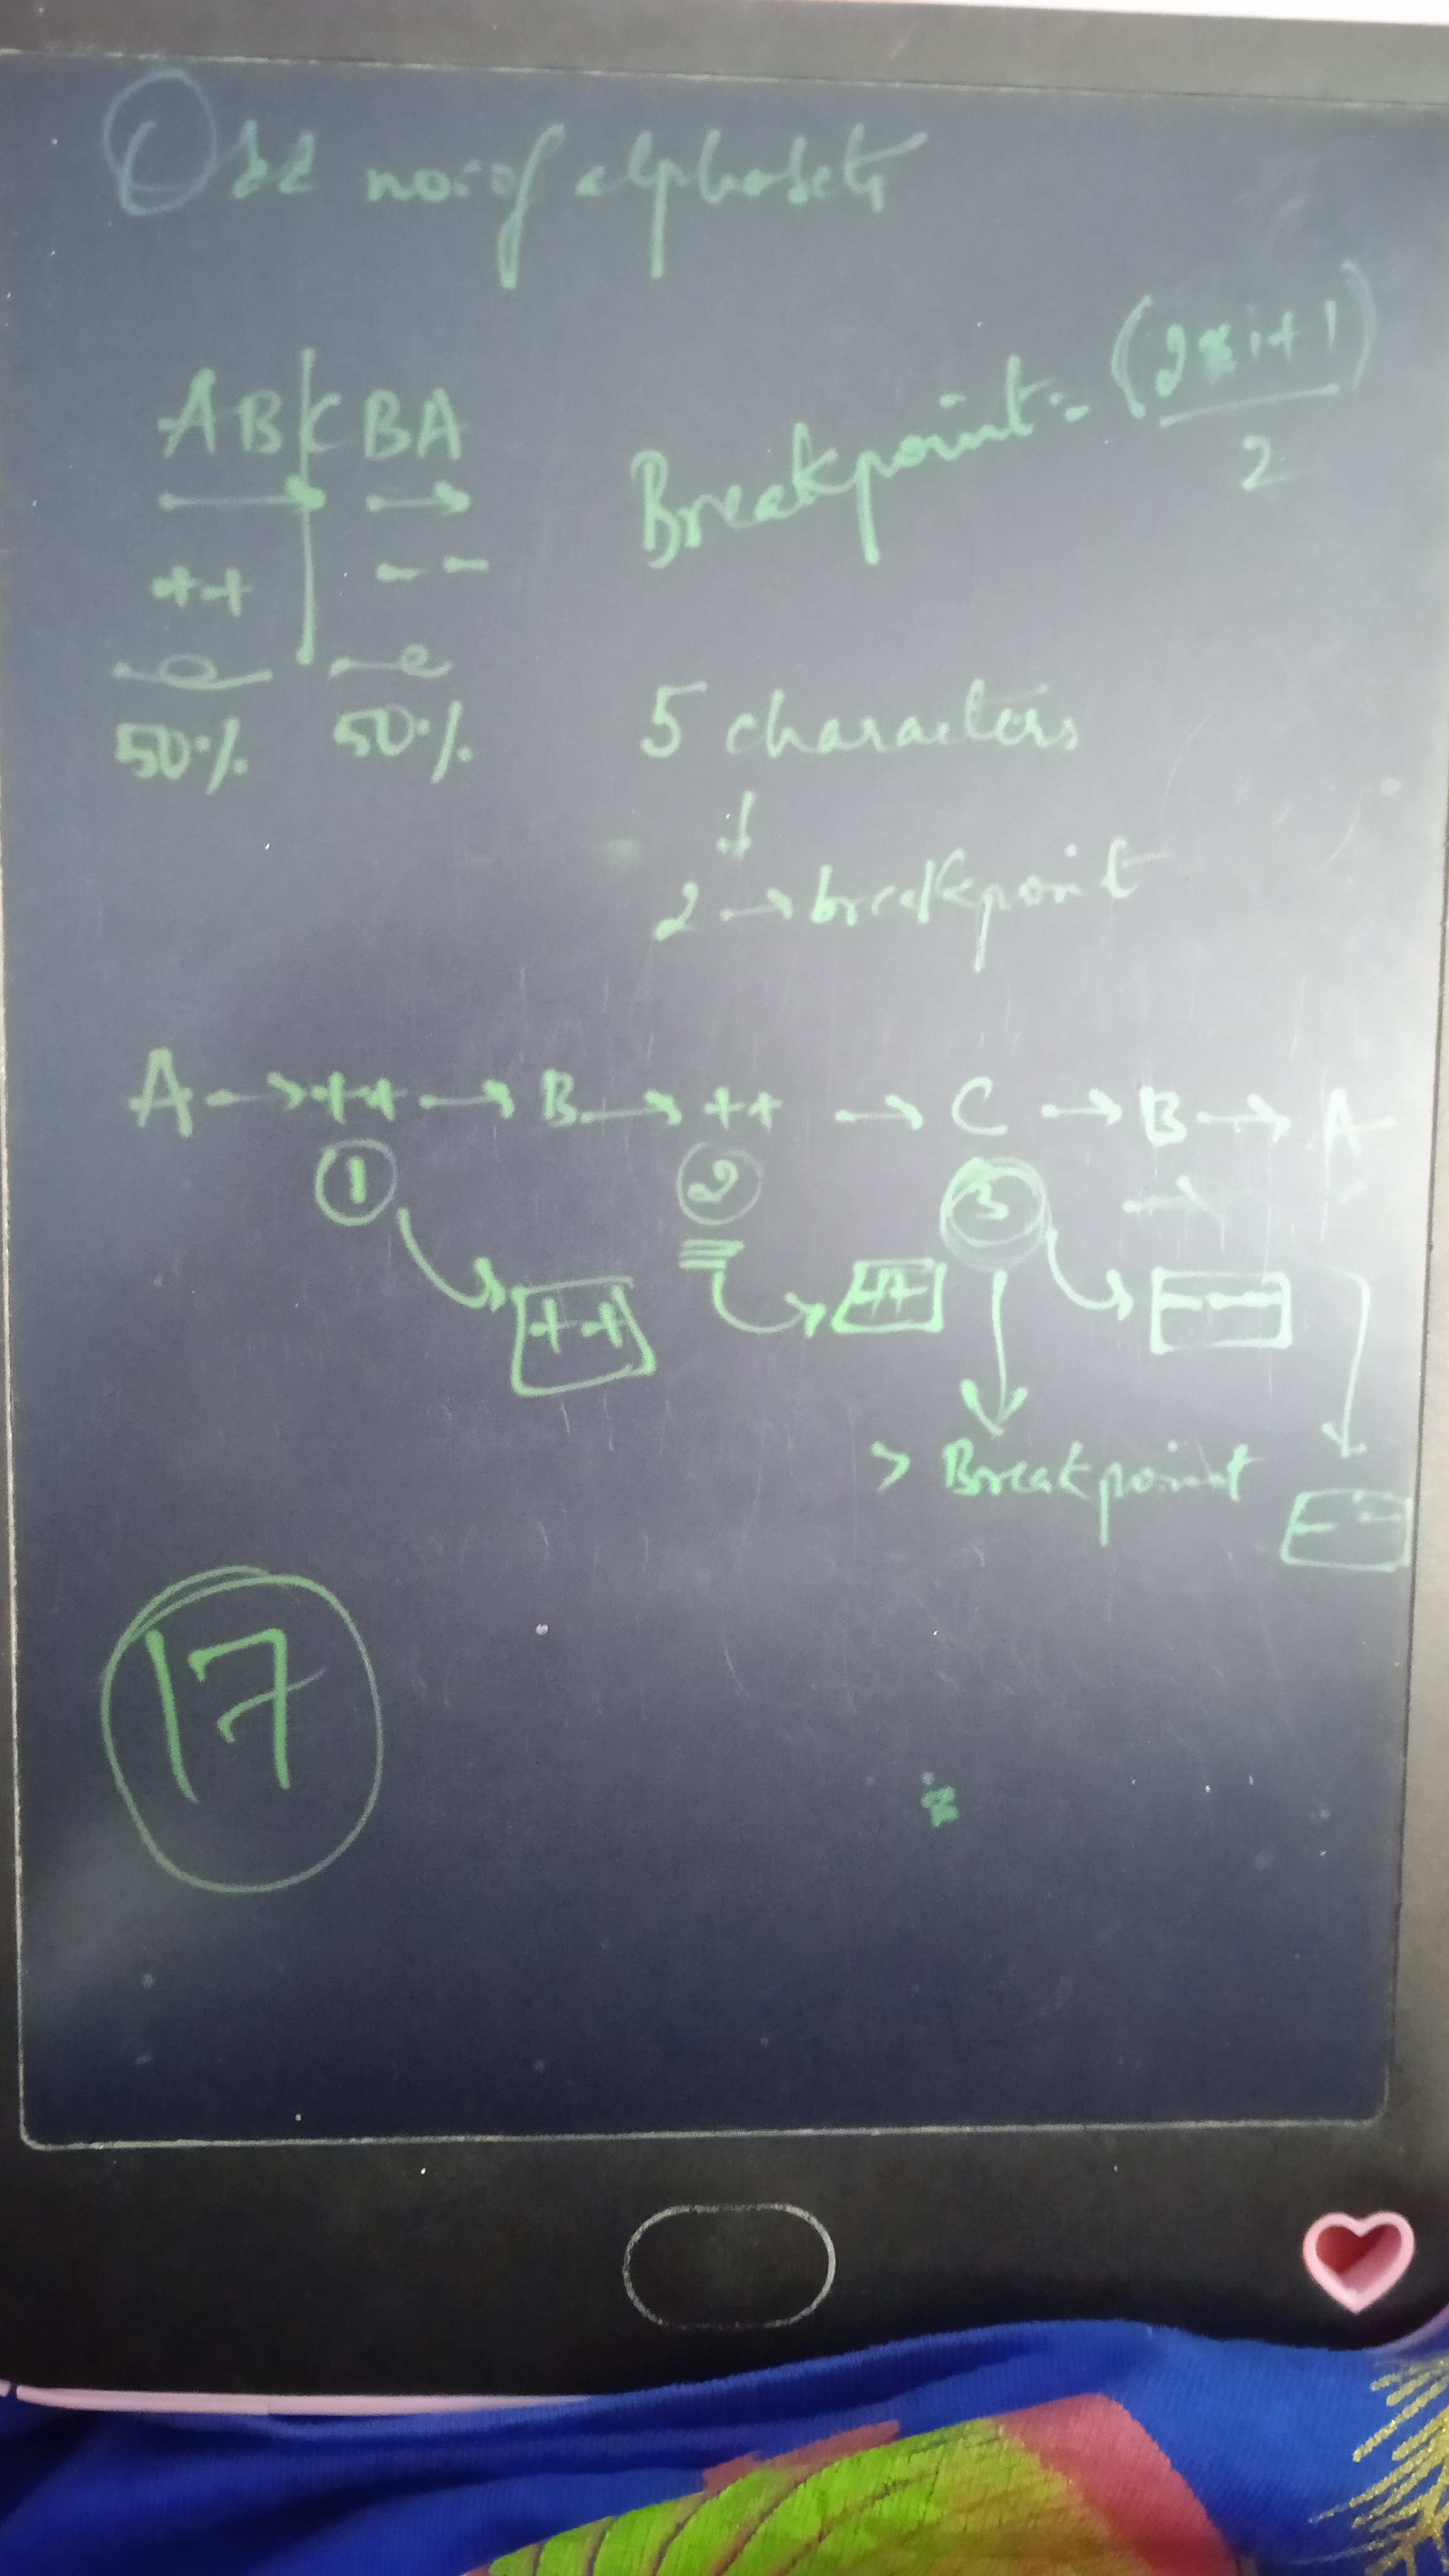 Odd no. of alphabets
ABCBA
Breakpoint = (2*i+1)
2
++ --
50% 50%
5 characters
2 → breakpoint
A → ++ → B → ++ → C → B → A
1 2 3
++ ++ --
> Breakpoint
--
17